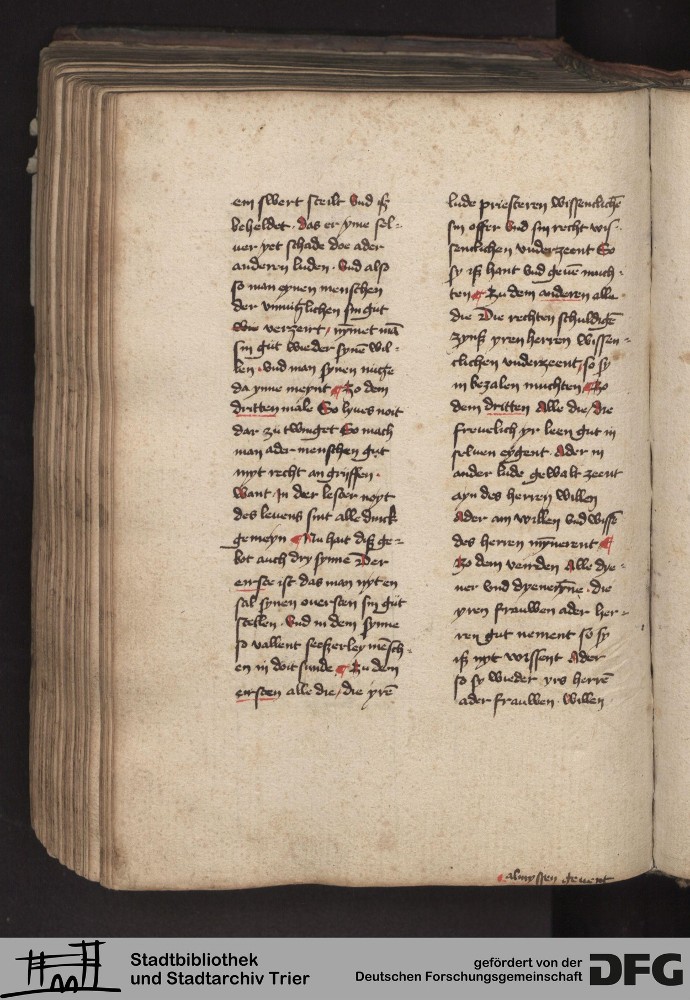 em swert steilt Vnd iß
beheldet · das er yme sel-
uer yet schade doe ader
anderen luden · Vnd also
so man eynen menschen
der vnmutzlichen sin gut
verzerrt / nymmet mā
sin gut wieder synē wil-
len · vnd man synen nutze
da ynne meynt ¶ Zo dem
dritten male So lyues noit
dar zu twinget So mach
man ader menschen gut
myt recht an griffen ·
Want In der lester noyt
des leuens sint alle dinck
gemeyn ¶ Nu hait diß ge-
bot auch dry synne Der
eirste ist das man nyt en
sal synen ouersten sin gut
stellen · Vnd in dem synne
so vallent seeßerley mēsch-
en in doit sunde ¶ Zu dem
eirsten alle die / die yrē
lude priesteren wissenclichē
sin offer Vnd sin recht wis-
senclichen vnderzeent So
sy iß hant vnd geuē much-
ten ¶ Zu dem anderen alle
die Die rechten schuldigē
zynß yren herren wissen-
clichen vnderzeent / so sy
in bezalen muchten ¶ Zo
dem dritten Alle die / die
freuelich yr leen gut in
seluen eygent · Ader in
ander lude gewalt zeent
ayn des herren willen
Ader ain willen vnd wissē
des herren mynerent ¶
Zo dem veirden Alle dye-
ner vnd dyenerynē · die
yren frauwen ader her-
ren gut nement so sy
iß nyt wissent Ader
so sy wieder yrs herrē
ader frauwen · willen
almyssen geuent
Stadtbibliothek
und Stadtarchiv Trier
gefördert von der
Deutschen Forschungsgemeinschaft
DFG